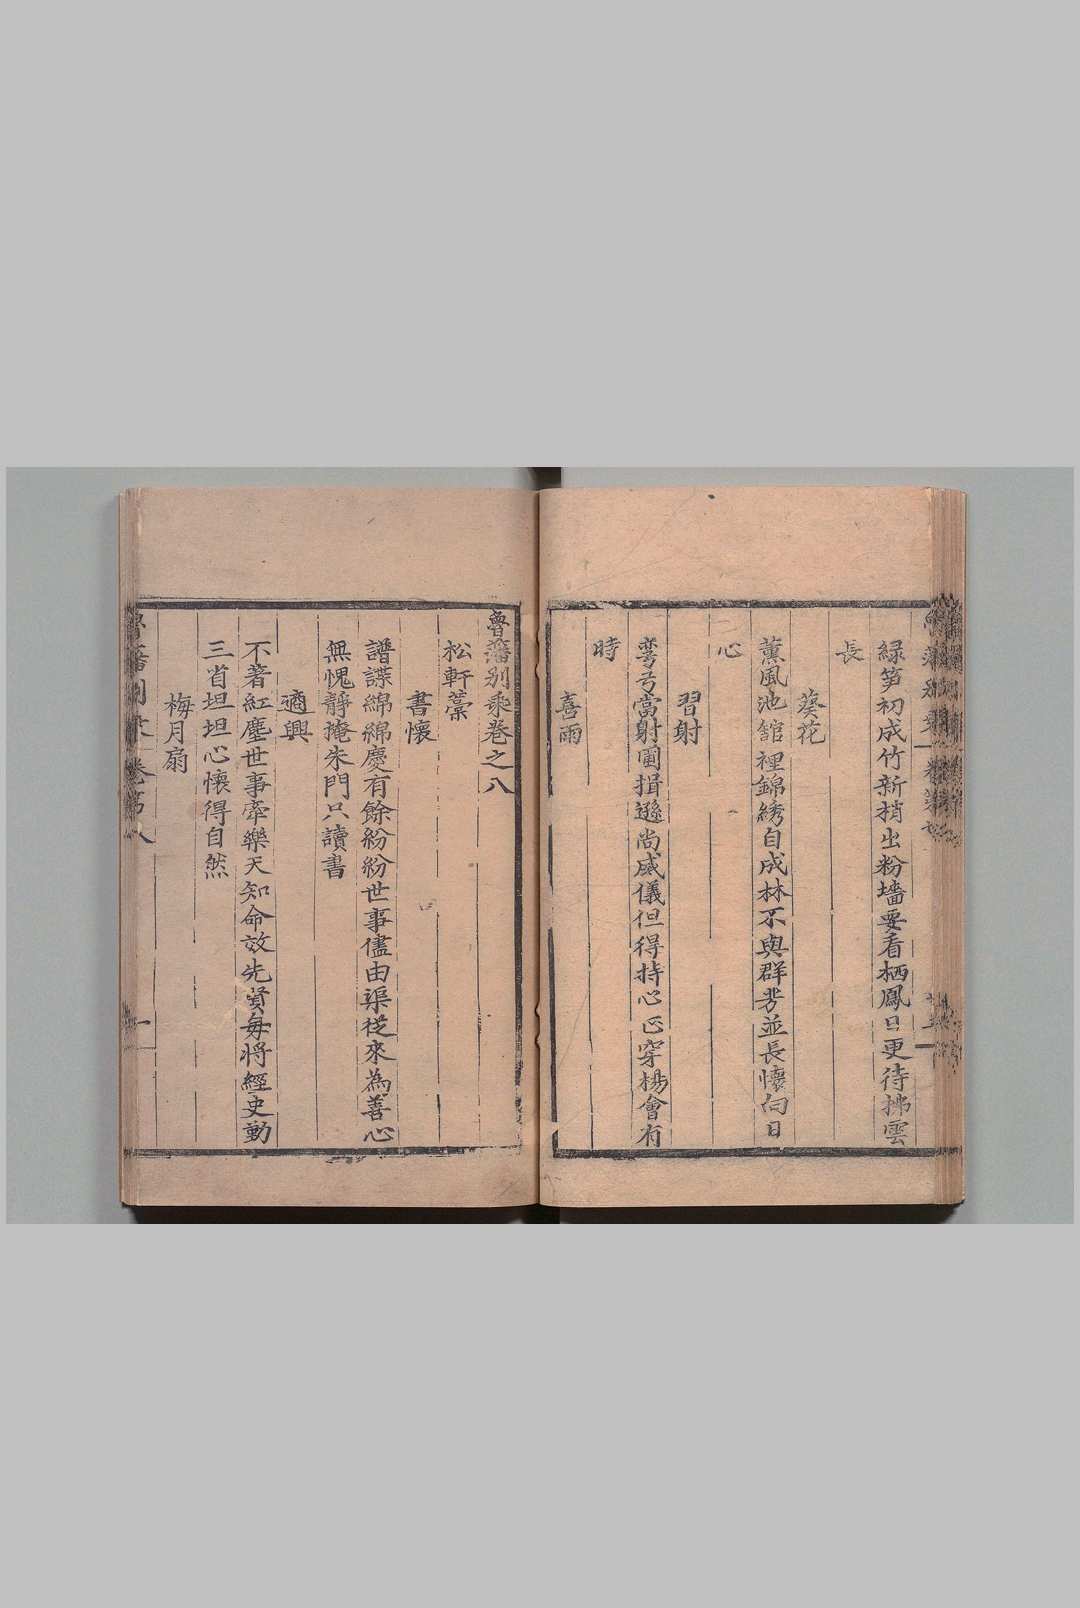 緑笋初成竹新梢出粉墻要看栖鳳日更待拂雲
長
葵花
薰風池舘裡錦綉自成林不與群芳並長懷向日
心
習射
彎弓當射圃揖遜尚威儀但得持心正穿楊會有
時
喜雨
魯藩别乘巻之八
松軒藁
書懷
譜諜綿綿慶有餘紛紛世事儘由渠從來為善心
無愧靜掩朱門只讀書
適興
不著紅塵世事牽樂天知命效先賢毎將經史勤
三省坦坦心懷得自然
梅月扇
魯藩别乘 巻第八 一